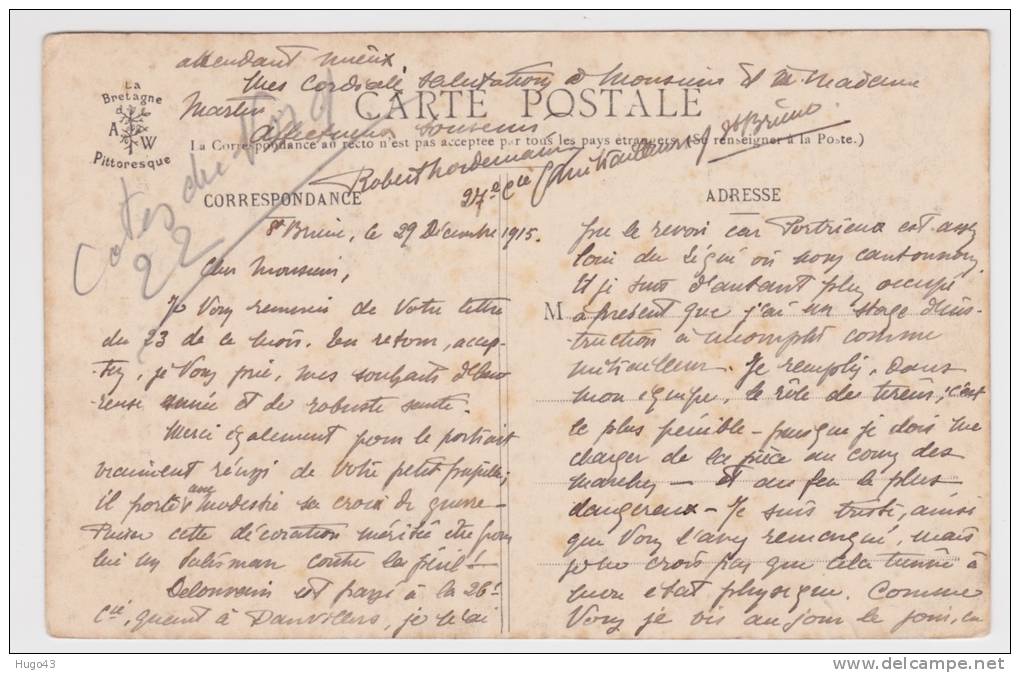 attendant mieux.
Mes cordiales salutations à Monsieur et à Madame
Martin
CARTE POSTALE
Affectueux souvenir
La Correspondance au recto n'est pas acceptée par tous les pays étrangers. (Se renseigner à la Poste.)
La
Bretagne
A W
Pittoresque
Robert
27e Cie Mitrailleurs St Brieuc
Cotes du Nord
22
CORRESPONDANCE
St Brieuc, le 29 Décembre 1915.
Cher Monsieur,
Je vous remercie de votre lettre
du 23 de ce mois. En retour, accep-
tez, je vous prie, mes souhaits d'heu-
reuse année et de robuste santé.
Merci également pour le portrait
vraiment réussi de votre petit
il porte avec modestie sa croix de guerre.
Puisse cette décoration méritée être pour
lui un talisman contre le péril!
est passé à la 26e
Cie, quant à Danvillers, je n'ai
ADRESSE
M
pu le revoir car Portrieux est assez
loin du Légué où nous cantonnons.
Et je suis d'autant plus occupé
à présent que j'ai un stage d'ins-
truction à accomplir comme
mitrailleur. Je remplis, dans
mon équipe, le rôle de tireur; c'est
le plus pénible - puisque je dois me
charger de la pièce au cours des
marches - et au feu le plus
dangereux - Je suis triste, ainsi
que vous l'avez remarqué, mais
je ne crois pas que cela tienne à
mon état physique. Comme
vous je vis au jour le jour, en
Hugo43
www.delcampe.net